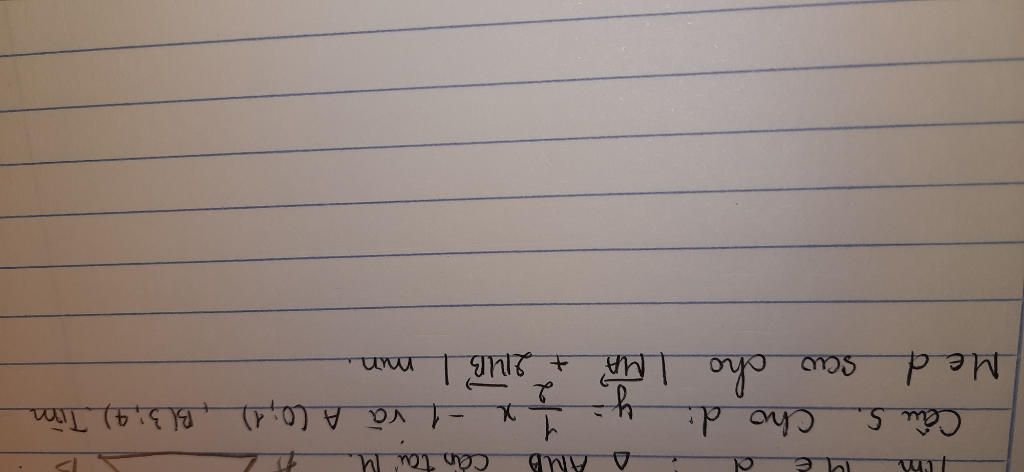 Tìm M ∈ d : Δ AMB cân tại M. A B
Câu 5. Cho d: y = 1/2 x - 1 và A(0;1), B(3;4). Tìm
M ∈ d sao cho |MA→ + 2MB→| min.